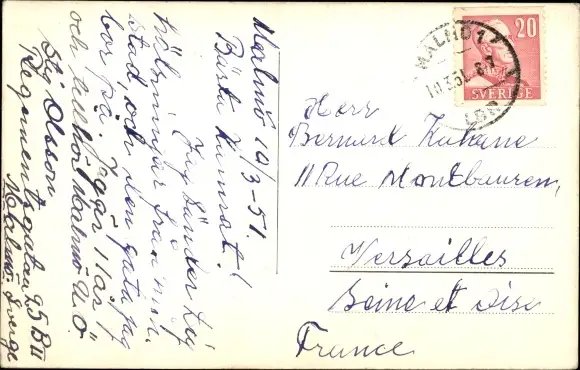 Malmö 10/3-51.
Bästa kamrat!
Jag sänder Dej
hälsningar från min
stad, och den gata jag
bor på. Jag är 11 år
och tillhör Malmö U Ö.
Stig Olsson
Regementsgatan 25 B III
Malmö. Sverge
20
SVERIGE
MALMÖ 1
10.3.51
Herr
Bernard Kuhane
11 Rue Montbauren,
Versailles
Seine et Oise
France